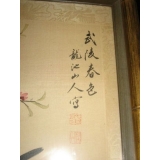 武陵春色
龍池山人寫